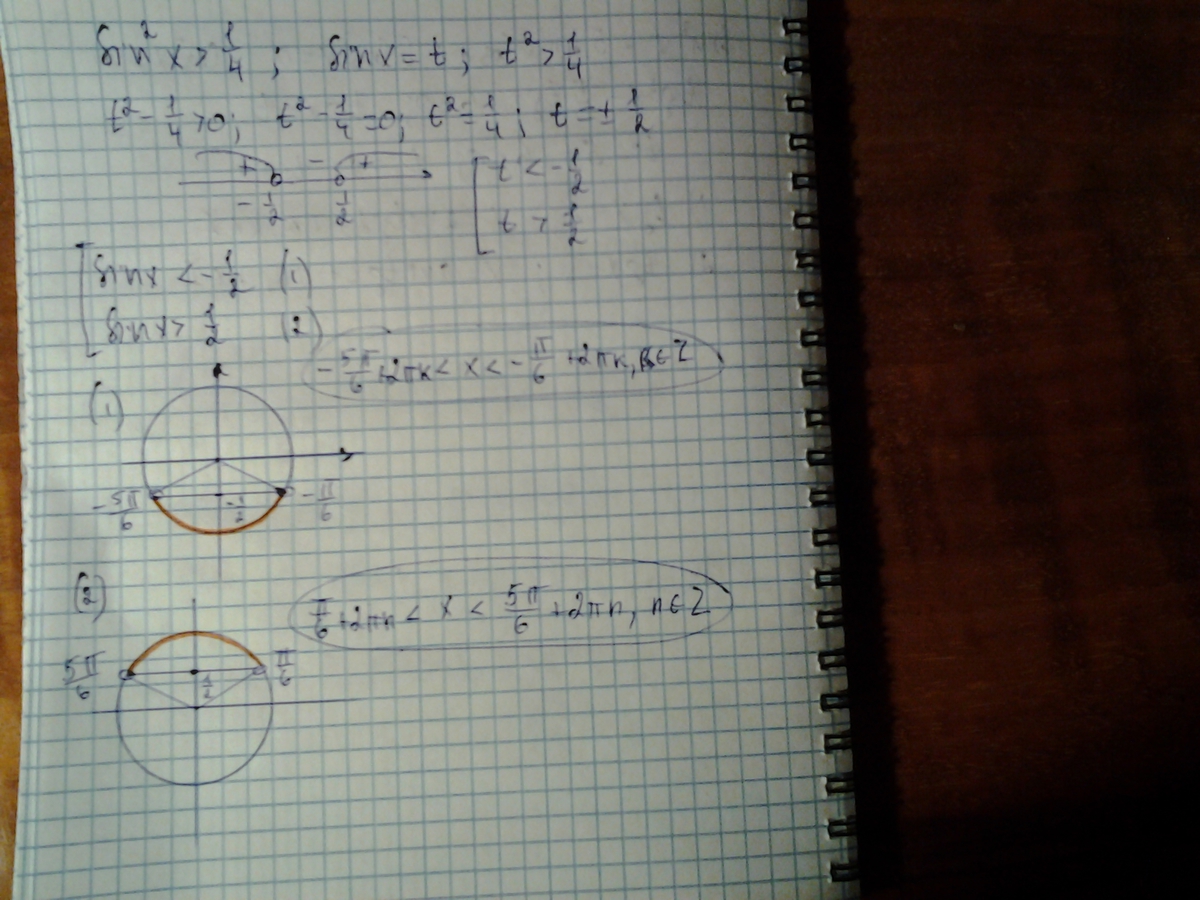 sin² x > 1/4 ; sin x = t ; t² > 1/4
t² - 1/4 > 0 ; t² - 1/4 = 0 ; t² = 1/4 ; t = ± 1/2
+ - +
-1/2 1/2
[ t < -1/2
t > 1/2
[ sin x < -1/2 (1)
sin x > 1/2 (2)
-5π/6 + 2πk < x < -π/6 + 2πk, k ∈ Z
(1)
-5π/6 -1/2 -π/6
(2)
π/6 + 2πn < x < 5π/6 + 2πn, n ∈ Z
5π/6 1/2 π/6